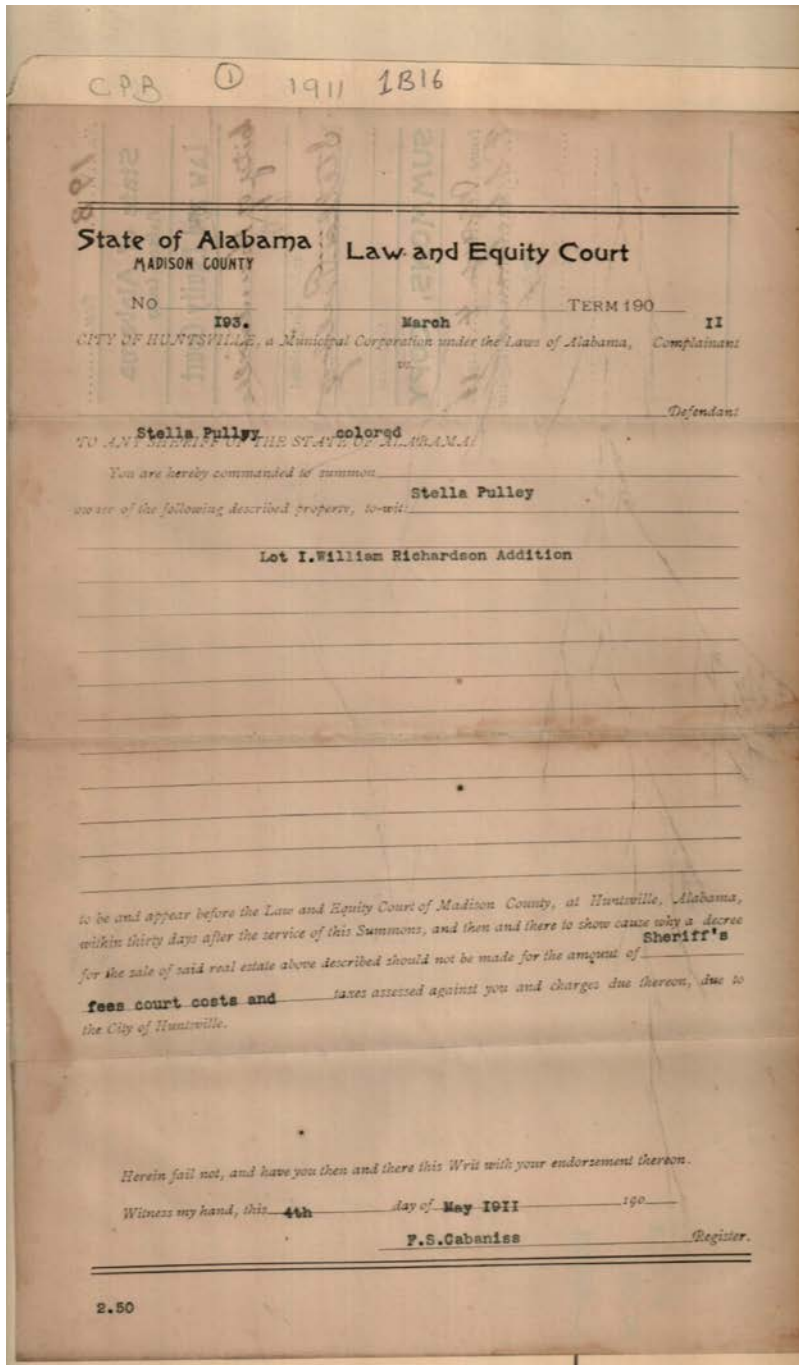 CPB ① 1911 1B16
State of Alabama
MADISON COUNTY
Law and Equity Court
No TERM 190
I93. March II
CITY OF HUNTSVILLE, a Municipal Corporation under the Laws of Alabama, Complainant
vs.
Defendant
Stella Pullyy colored
TO ANY SHERIFF OF THE STATE OF ALABAMA:
You are hereby commanded to summon
Stella Pulley
owner of the following described property, to-wit:
Lot I.William Richardson Addition
to be and appear before the Law and Equity Court of Madison County, at Huntsville, Alabama,
within thirty days after the service of this Summons, and then and there to show cause why a decree
for the sale of said real estate above described should not be made for the amount of Sheriff's
fees court costs and taxes assessed against you and charges due thereon, due to
the City of Huntsville.
Herein fail not, and have you then and there this Writ with your endorsement thereon.
Witness my hand, this 4th day of May I9II 190
F.S.Cabaniss Register.
2.50